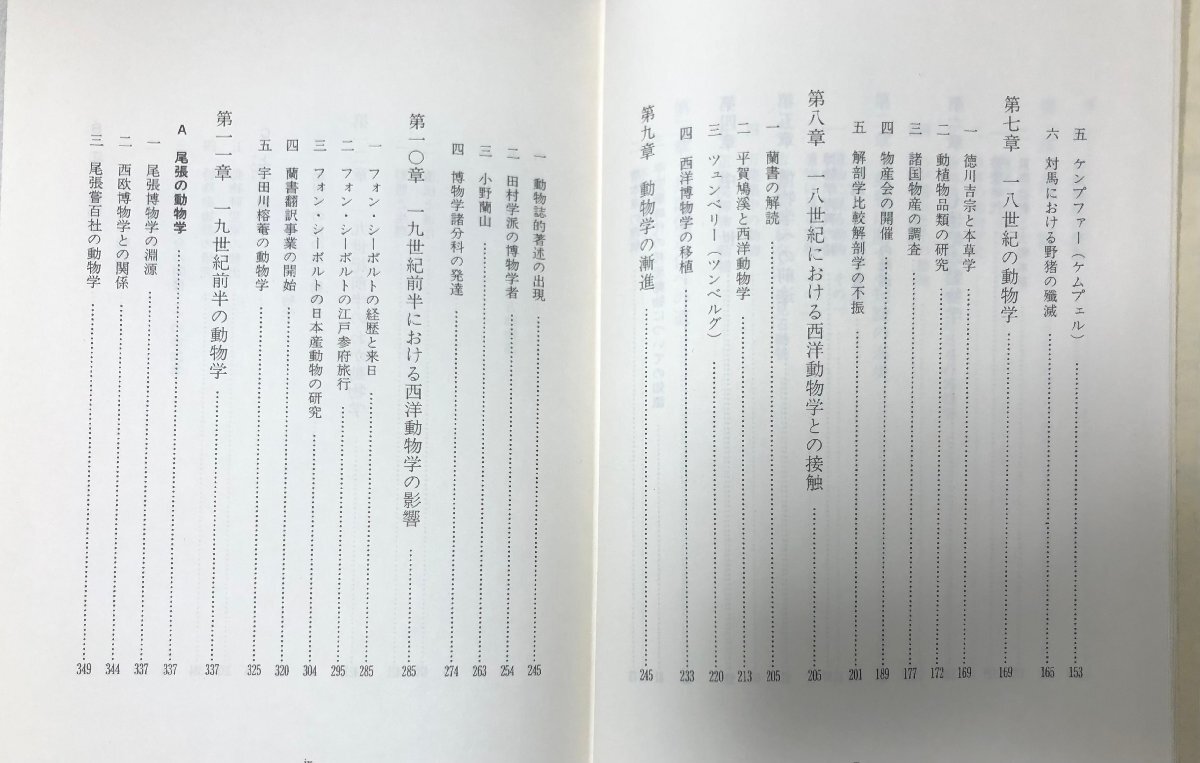 五 ケンプファー（ケムプェル）……153
六 対馬における野猪の殲滅……165
第七章 一八世紀の動物学……169
一 徳川吉宗と本草学……169
二 動植物品類の研究……172
三 諸国物産の調査……177
四 物産会の開催……189
五 解剖学比較解剖学の不振……201
第八章 一八世紀における西洋動物学との接触……205
一 蘭書の解読……205
二 平賀鳩溪と西洋動物学……213
三 ツュンベリー（ツンベルグ）……220
四 西洋博物学の移植……233
第九章 動物学の漸進……245
一 動物誌的著述の出現……245
二 田村学派の博物学者……254
三 小野蘭山……263
四 博物学諸分科の発達……274
第一〇章 一九世紀前半における西洋動物学の影響……285
一 フォン・シーボルトの経歴と来日……285
二 フォン・シーボルトの江戸参府旅行……295
三 フォン・シーボルトの日本産動物の研究……304
四 蘭書翻訳事業の開始……320
五 宇田川榕菴の動物学……325
第一一章 一九世紀前半の動物学……337
A 尾張の動物学……337
一 尾張博物学の淵源……337
二 西欧博物学との関係……344
三 尾張嘗百社の動物学……349